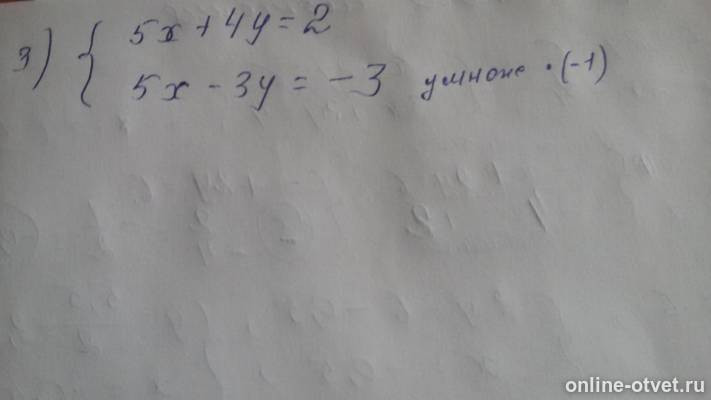 3) { 5x + 4y = 2
5x - 3y = -3 умноже • (-1)
online-otvet.ru